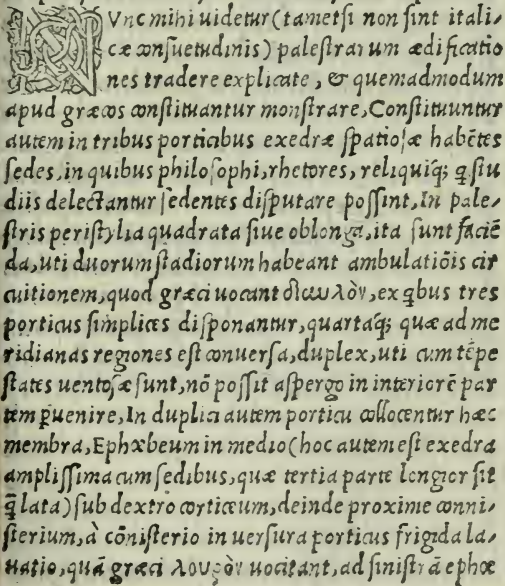 NVnc mihi uidetur (tametſi non ſint itali⸗
cæ conſuetudinis) paleſtrarum ædificatio
nes tradere explicate, & quemadmodum
apud græcos conſtituantur monſtrare, Conſtituuntur
autem in tribus porticibus exedræ ſpatioſæ habẽtes
ſedes, in quibus philoſophi, rhetores, reliquiq; q ſtu
diis delectantur ſedentes diſputare poſſint, In pale⸗
ſtris periſtylia quadrata ſiue oblonga, ita ſunt faciẽ
da, uti duorum ſtadiorum habeant ambulatiõis cir
cuitionem, quod græci uocant δίαυλὸν, ex qbus tres
porticus ſimplices diſponantur, quartaq; quæ ad me
ridianas regiones eſt conuerſa, duplex, uti cum tẽpe
ſtates uentoſæ ſunt, nõ poſſit aſpergo in interiorẽ par
tem puenire, In duplici autem porticu collocentur hæc
membra, Ephœbeum in medio (hoc autem eſt exedra
ampliſſima cum ſedibus, quæ tertia parte longior ſit
q̃ lata) ſub dextro corticeum, deinde proxime conni⸗
ſterium, à cõniſterio in uerſura porticus frigida la⸗
uatio, quã græci λουτρὸν uocitant, ad ſiniſtrã ephœ